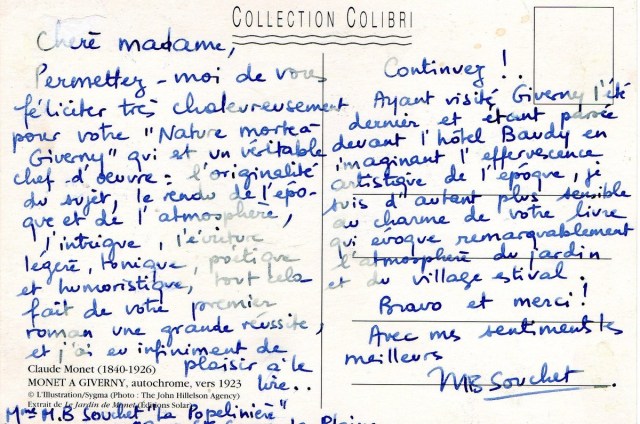 COLLECTION COLIBRI
Cherè madame,
Permettez-moi de vous
féliciter très chaleureusement
pour votre "Nature morte à
Giverny" qui est un véritable
chef d'oeuvre : l'originalité
du sujet, le rendu de l'épo-
que et de l'atmosphère,
l'intrigue, l'écriture
légère, tonique, poétique
et humoristique, tout cela
fait de votre premier
roman une grande réussite,
et j'ai eu infiniment de
plaisir à le
lire..
Claude Monet (1840-1926)
MONET A GIVERNY, autochrome, vers 1923
© L'Illustration/Sygma (Photo : The John Hillelson Agency)
Extrait de Le Jardin de Monet (Éditions Solar)
Mme M.B Souchet "La Popelinière"
Continuez !
Ayant visité Giverny l'été
dernier et étant passée
devant l'hôtel Baudy en
imaginant l'effervescence
artistique de l'époque, je
suis d'autant plus sensible
au charme de votre livre
qui évoque remarquablement
l'atmosphère du jardin
et du village estival.
Bravo et merci !
Avec mes sentiments les
meilleurs
MB Souchet.